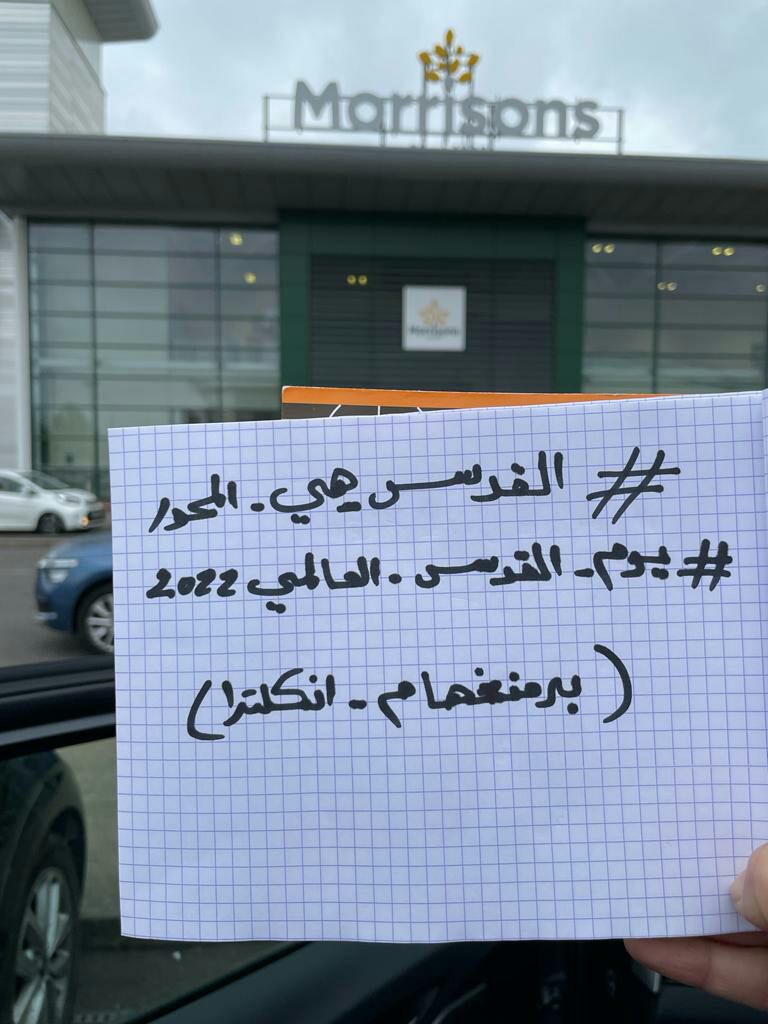 Morrisons
Morrisons
# القدس هي - المحور
# يوم - القدس - العالمي 2022
( برمنغهام - انكلترا )